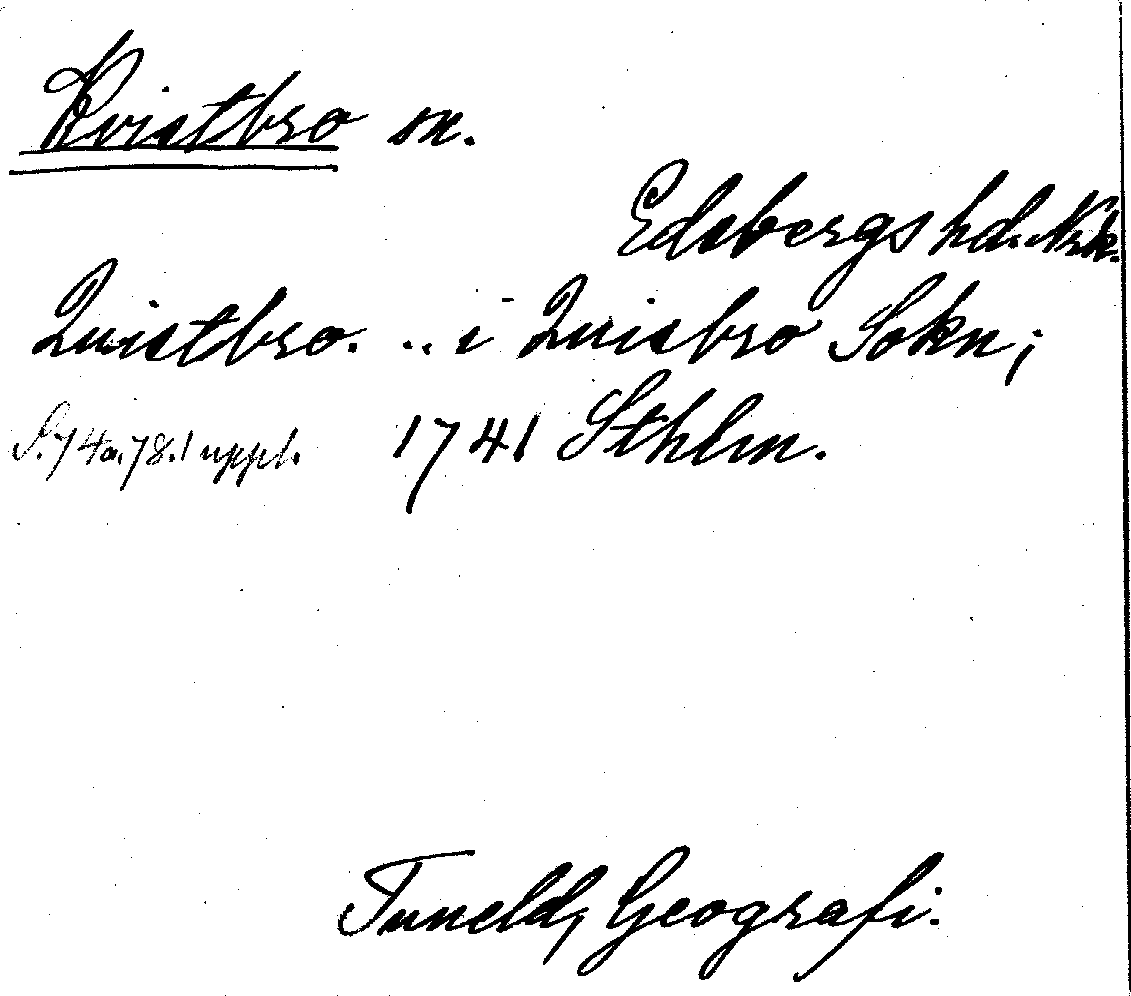 Kvistbro sn.
Edsbergs hd. Nrk.
Quistbro. .. i Quisbro Sokn;
S. 74a. 78. 1 uppl. 1741 Sthlm.
Tuneld, Geografi.